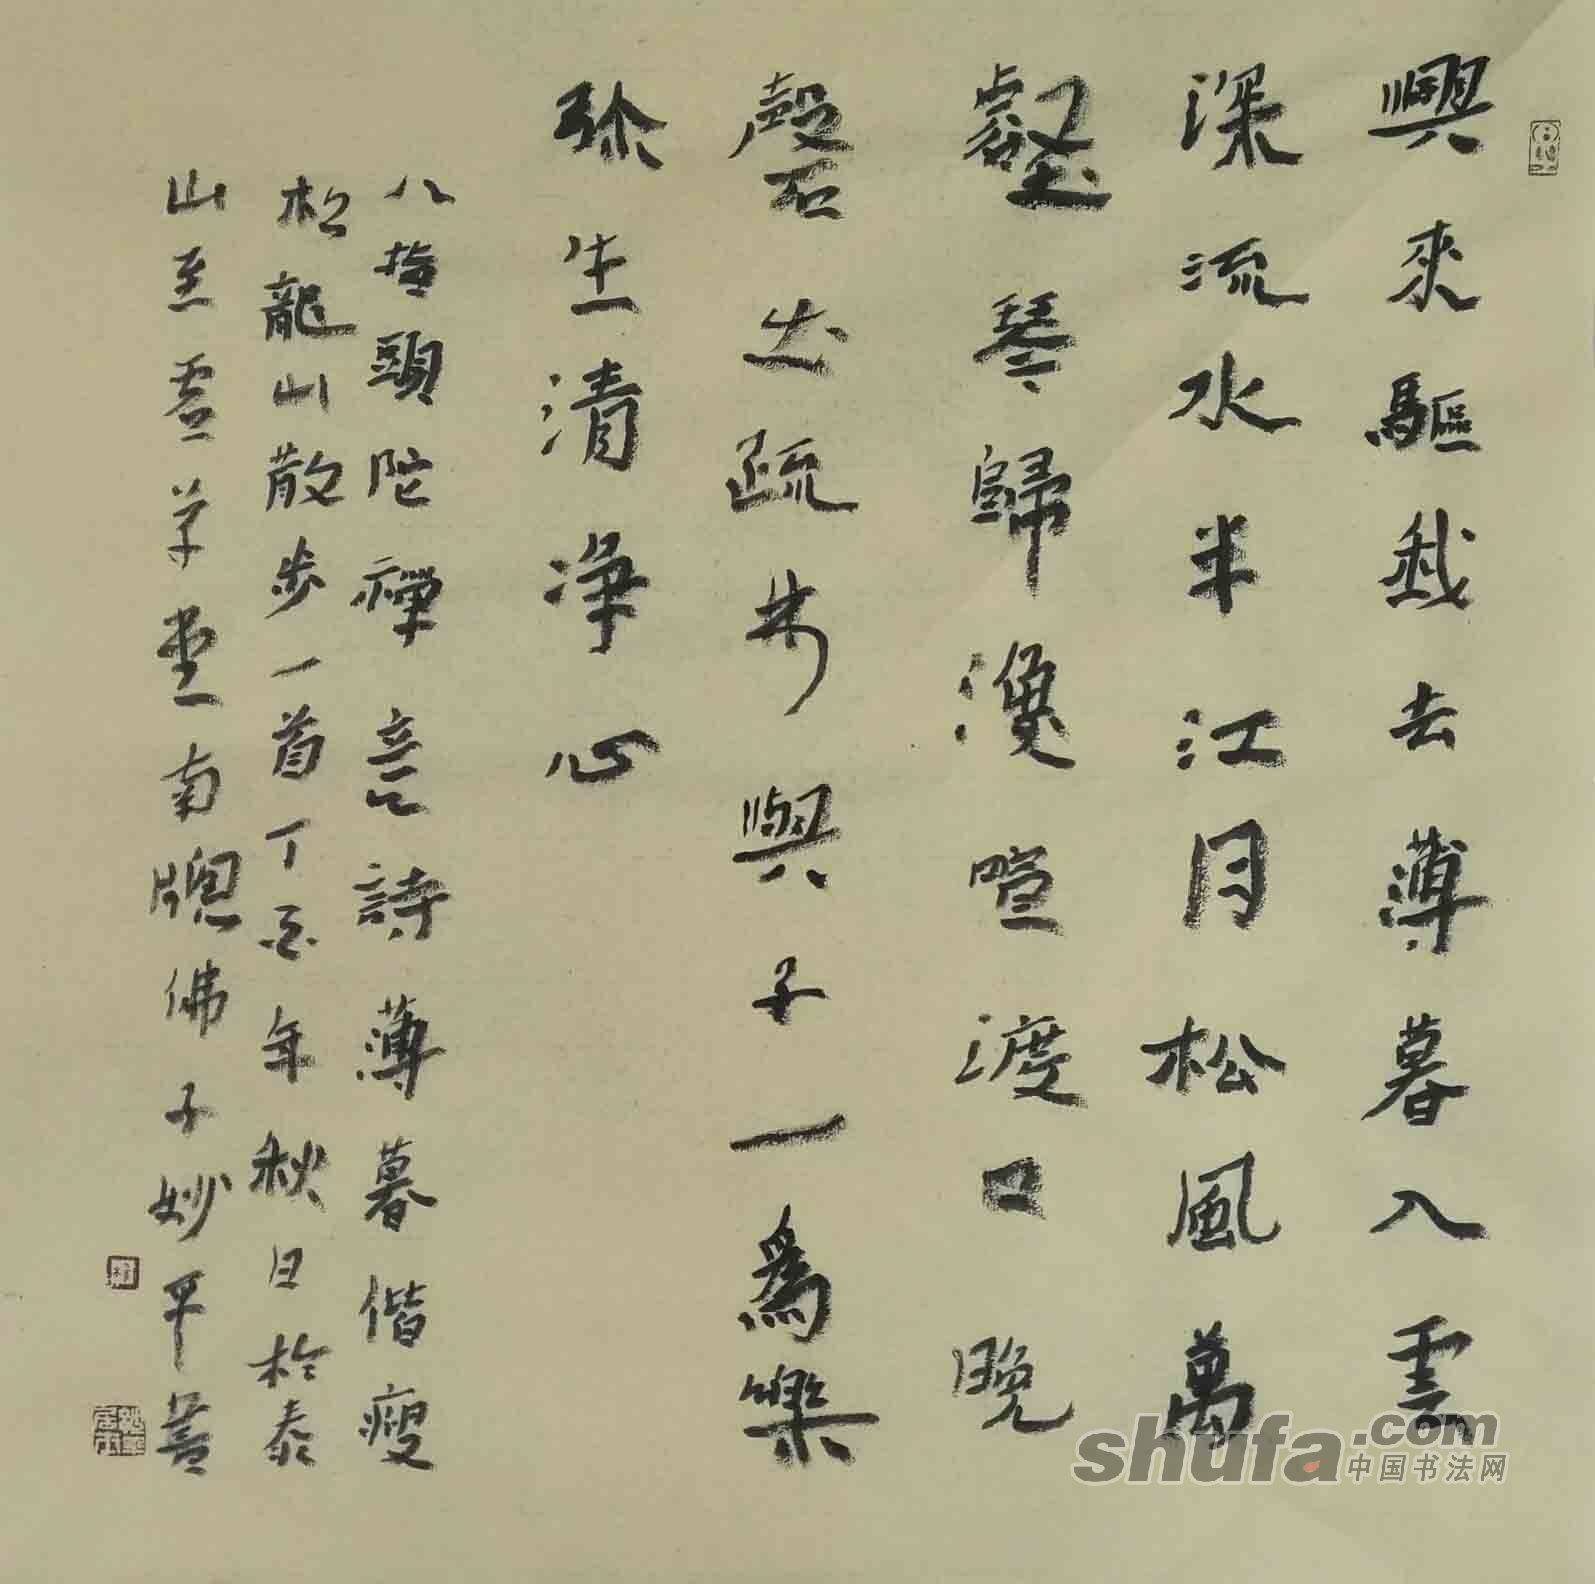 興來驅我去薄暮入雲
深流水半江月松風萬
壑琴歸漁喧渡口晚
磬出疏林與子一爲樂
弥生清净心
八指頭陀禪意詩薄暮偕瘦
松龍山散步一首丁酉年秋日於泰
山至虛草堂南牕佛子妙平書
shufa.com
中国书法网